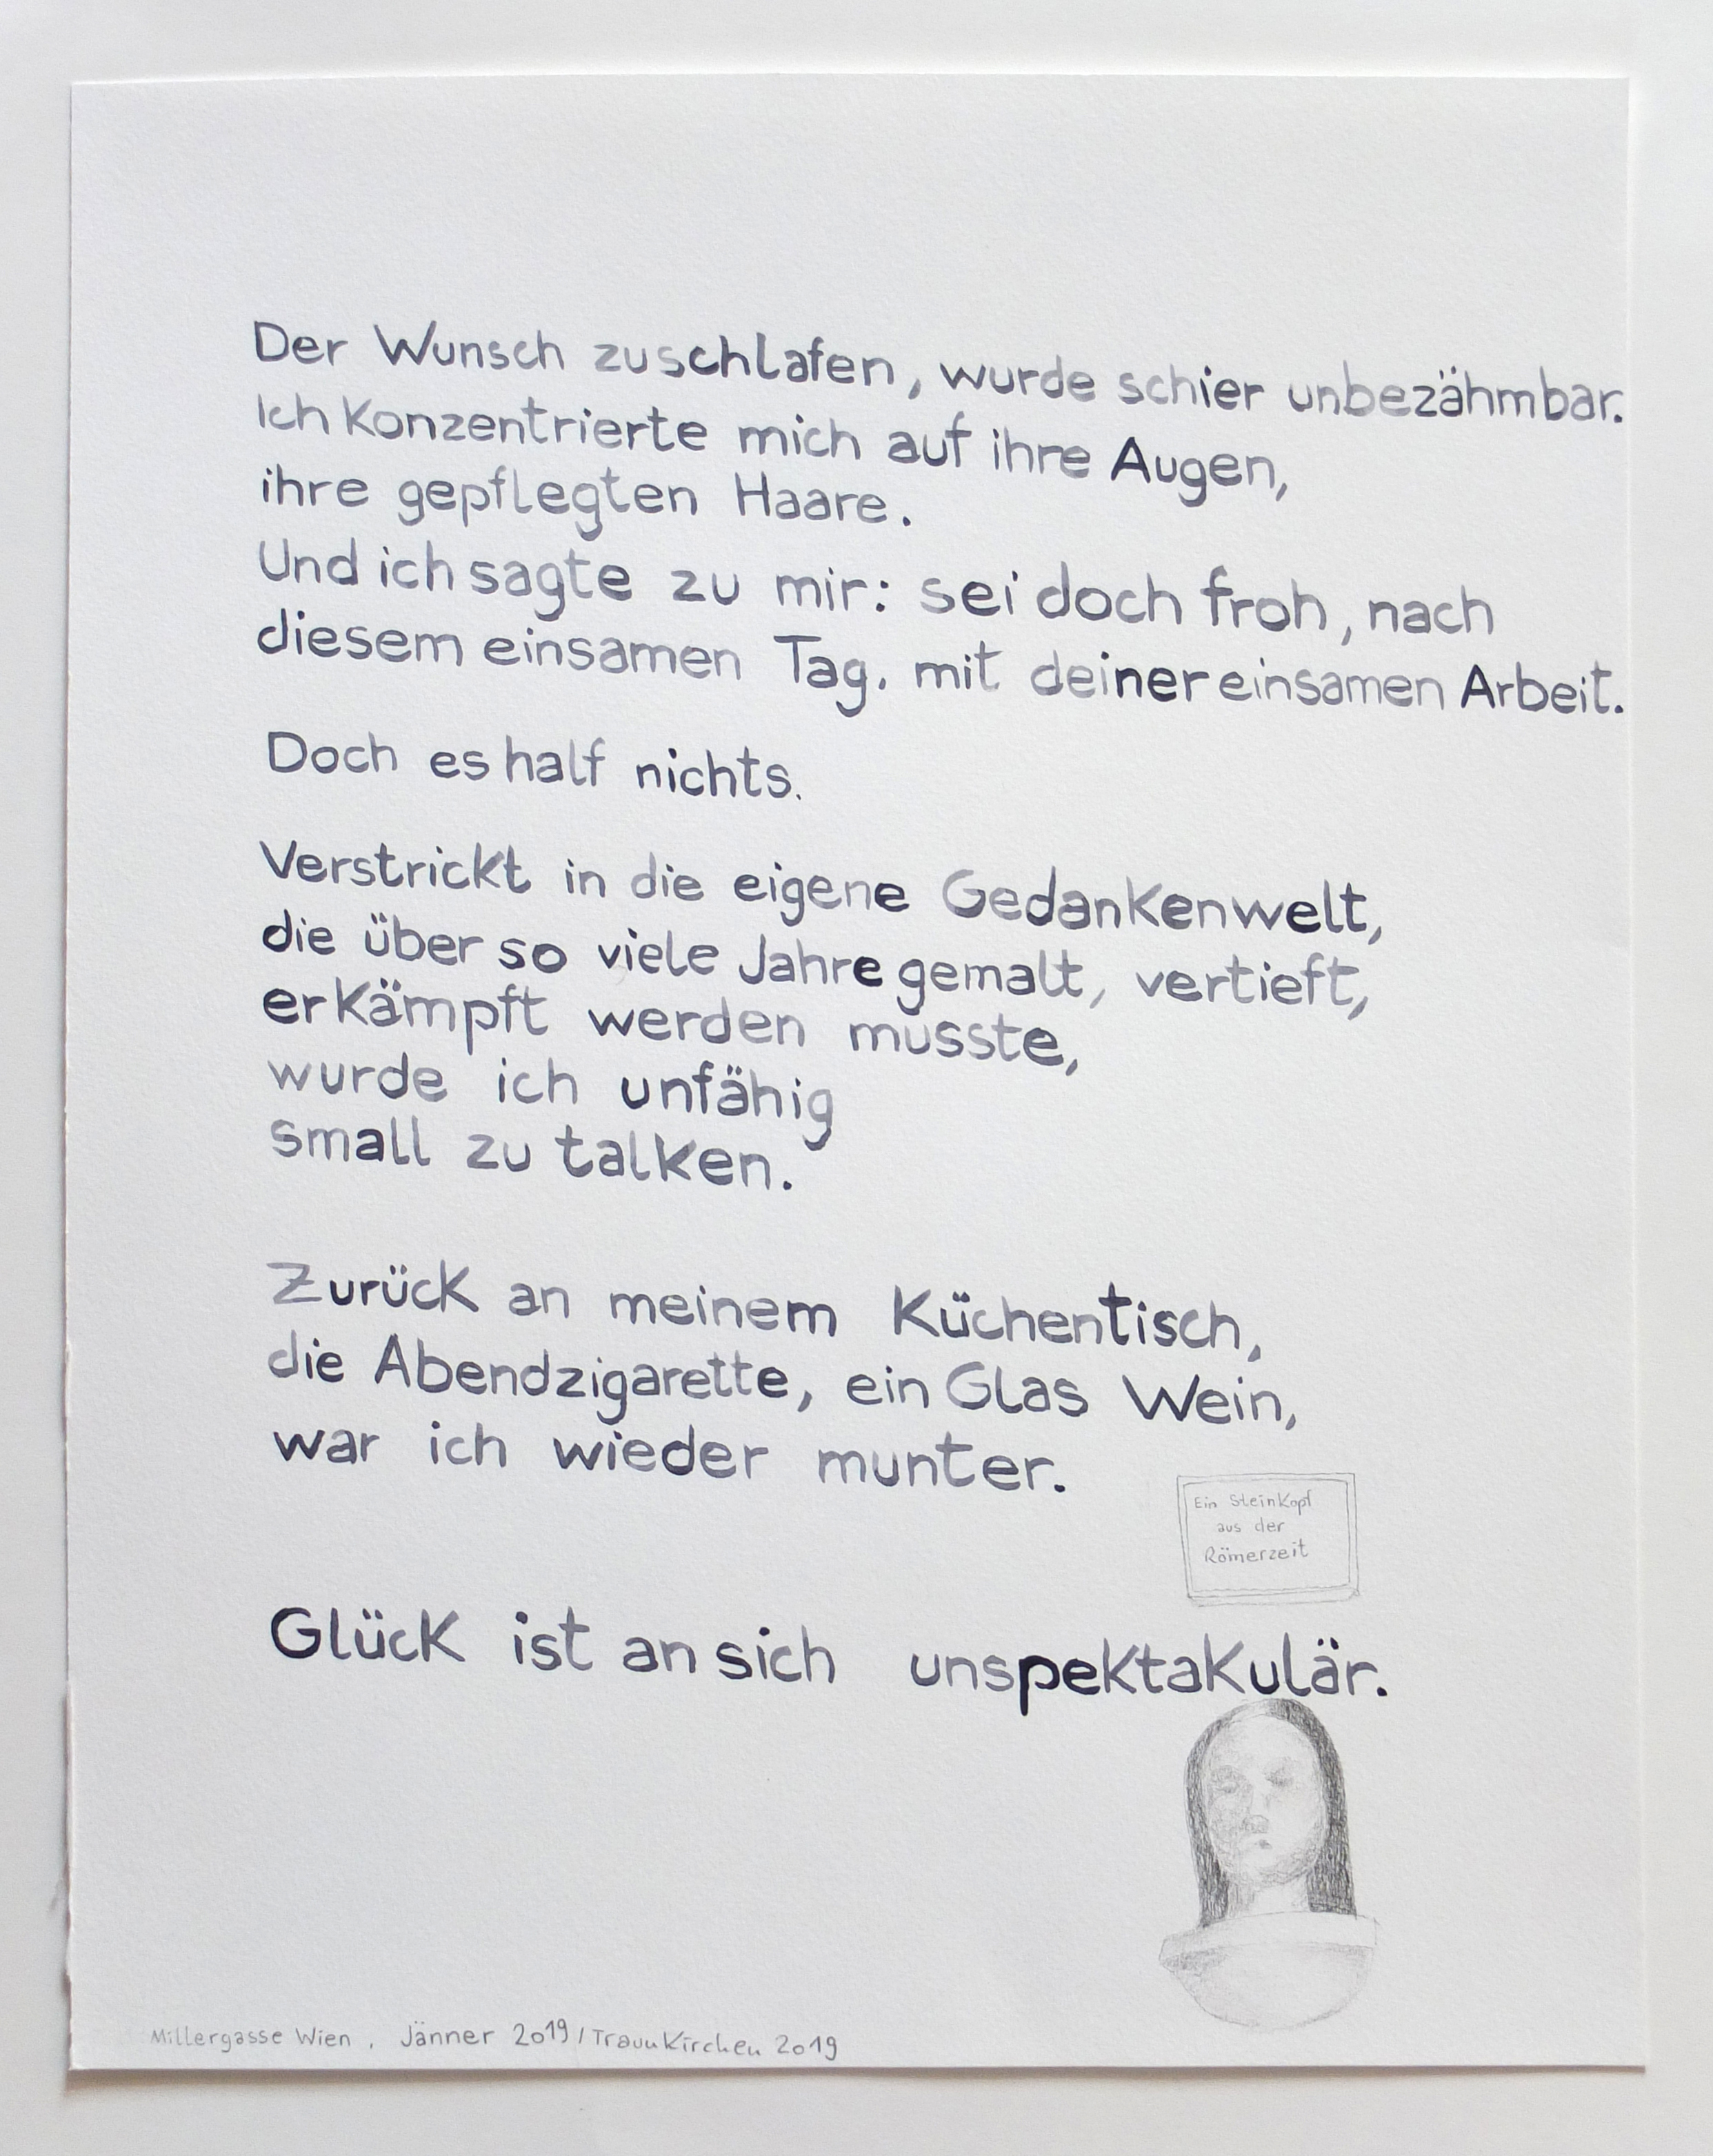 Der Wunsch zuschlafen, wurde schier unbezähmbar.
Ich konzentrierte mich auf ihre Augen,
ihre gepflegten Haare.
Und ich sagte zu mir: sei doch froh, nach
diesem einsamen Tag. mit deiner einsamen Arbeit.
Doch es half nichts.
Verstrickt in die eigene Gedankenwelt,
die über so viele Jahre gemalt, vertieft,
erkämpft werden musste,
wurde ich unfähig
small zu talken.
Zurück an meinem Küchentisch,
die Abendzigarette, ein Glas Wein,
war ich wieder munter.
Ein Steinkopf
aus der
Römerzeit
Glück ist an sich unspektakulär.
Millergasse Wien, Jänner 2019 / Traunkirchen 2019